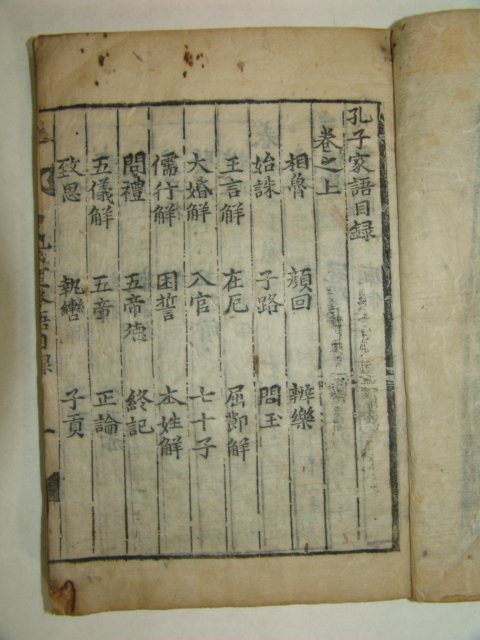 孔子家語目録
卷之上
相魯 顔回 辨樂
始誅 子路 問玉
王言解 在厄 屈節解
大婚解 入官 七十子
儒行解 困誓 本姓解
問禮 五帝德 終記
五儀解 五帝 正論
致思 執轡 子貢
家語目録 一